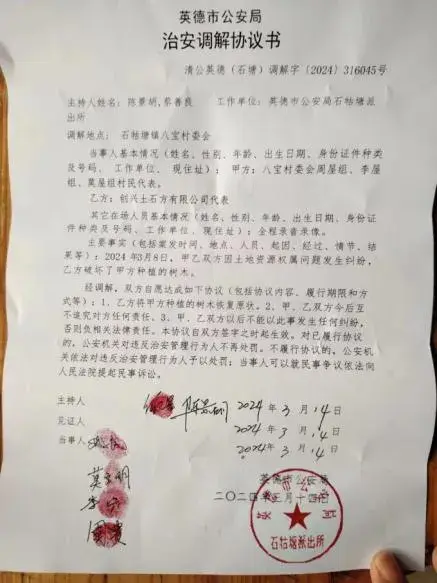 英德市公安局
治安调解协议书
清公英德（石塘）调解字〔2024〕316045号
主持人姓名：陈景胡,蔡善良 工作单位：英德市公安局石牯塘派
出所
调解地点：石牯塘镇八宝村委会
当事人基本情况（姓名、性别、年龄、出生日期、身份证件种类
及号码、工作单位、现住址）：甲方：八宝村委会周屋组、李屋
组、莫屋组村民代表。
乙方：创兴土石方有限公司代表
其它在场人员基本情况（姓名、性别、年龄、出生日期、身份证
件种类及号码、工作单位、现住址）：全程录音录像。
主要事实（包括案发时间、地点、人员、起因、经过、情节、结
果等）：2024年3月8日，甲乙双方因土地资源权属问题发生纠纷，
乙方破坏了甲方种植的树木。
经调解，双方自愿达成如下协议（包括协议内容、履行期限和方
式等）：1、乙方将甲方种植的树木恢复原状。2、甲、乙双方今后互
不追究对方任何责任。3、甲、乙双方以后不能以此事发生任何纠纷，
否则负相关法律责任。本协议自双方签字之时起生效。对已履行协议
的，公安机关对违反治安管理行为人不再处罚。不履行协议的，公安机
关依法对违反治安管理行为人予以处罚；当事人可以就民事争议依法向
人民法院提起民事诉讼。
主持人 2024年3月14日
见证人 2024年3月14日
当事人 2024年3月14日
莫
李
周
英德市公安局
二〇二四年三月十四日
石牯塘派出所